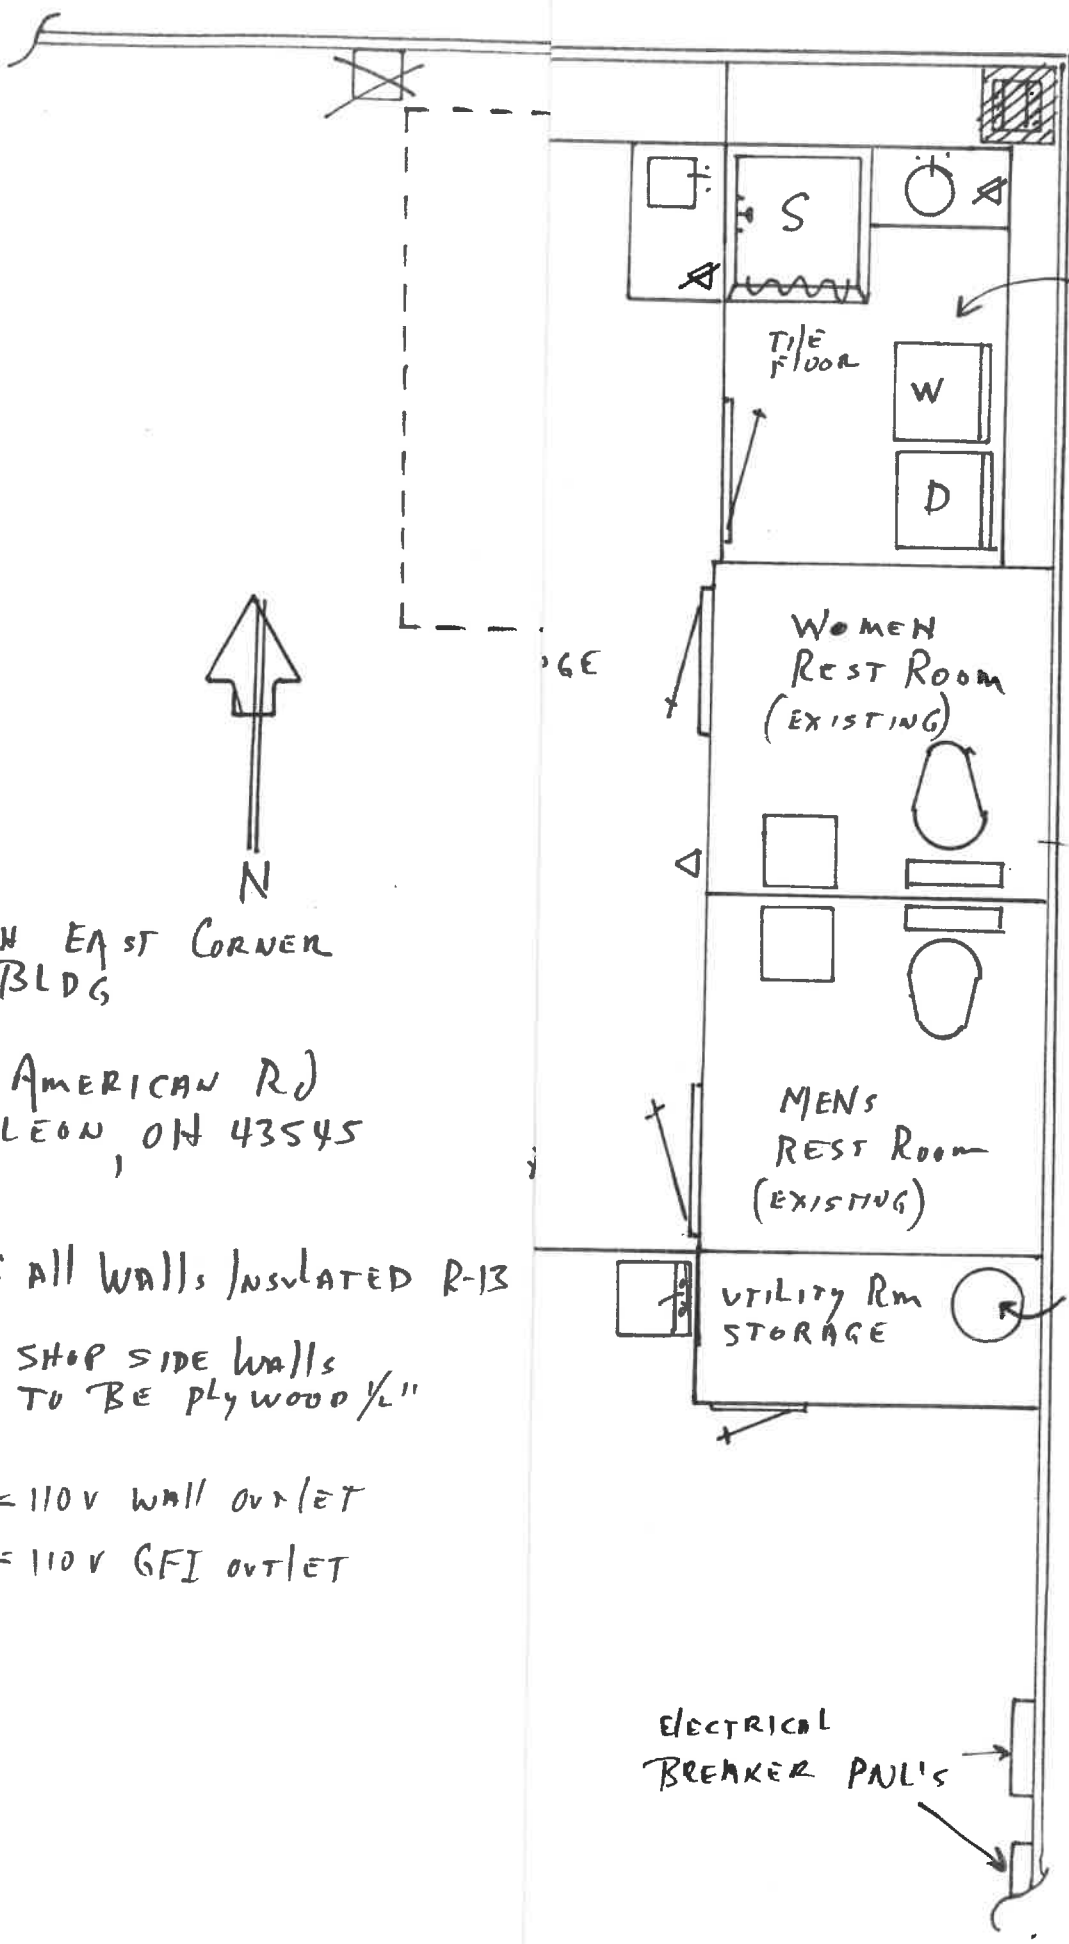 S
TILE
FLOOR
W
D
WOMEN
REST ROOM
(EXISTING)
GE
N
EAST CORNER
BLDG
AMERICAN Rd
LEON, OH 43545
MENS
REST ROOM
(EXISTING)
All WAlls INSULATED R-13
UTILITY Rm
STORAGE
SHOP SIDE WAlls
TO BE PLYWOOD 1/2"
= 110 V WAll OUTLET
= 110 V GFI OUTLET
ELECTRICAL
BREAKER PNL'S